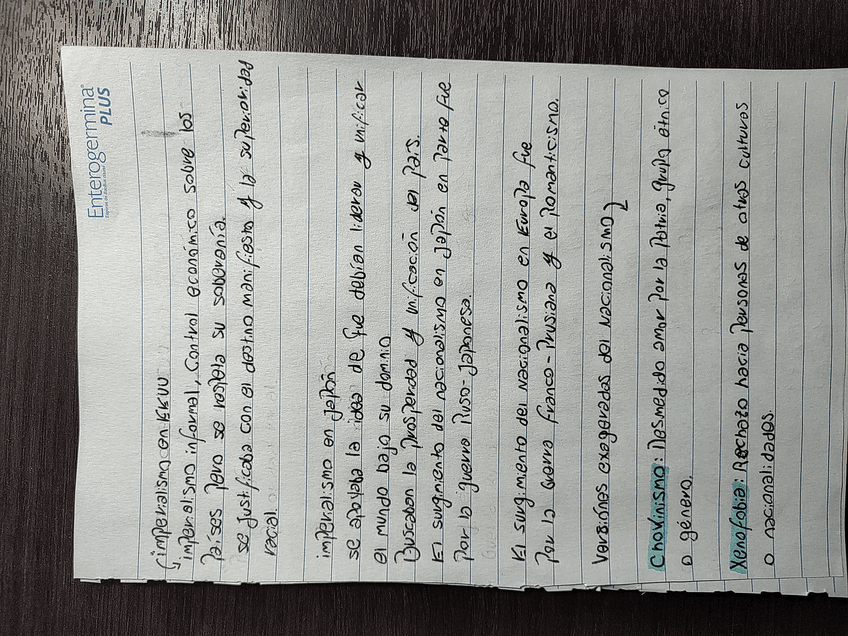 Enterogermina®
PLUS
imperialismo en EEUU
imperialismo informal, control económico sobre los
países pero se respeta su soberanía.
se justificaba con el destino manifiesto y la superioridad
racial.
imperialismo en Japón
se apoyaba la idea de que debían liderar y unificar
el mundo bajo su dominio
Buscaban la prosperidad y unificación del país.
El surgimiento del nacionalismo en Japón en parte fue
por la guerra Ruso-Japonesa.
El surgimiento del nacionalismo en Europa fue
por la Guerra Franco-Prusiana y el Romanticismo.
Versiones exageradas del nacionalismo
Chovinismo: Desmedido amor por la patria, grupo étnico
o género.
Xenofobia: Rechazo hacia personas de otras culturas
o nacionalidades